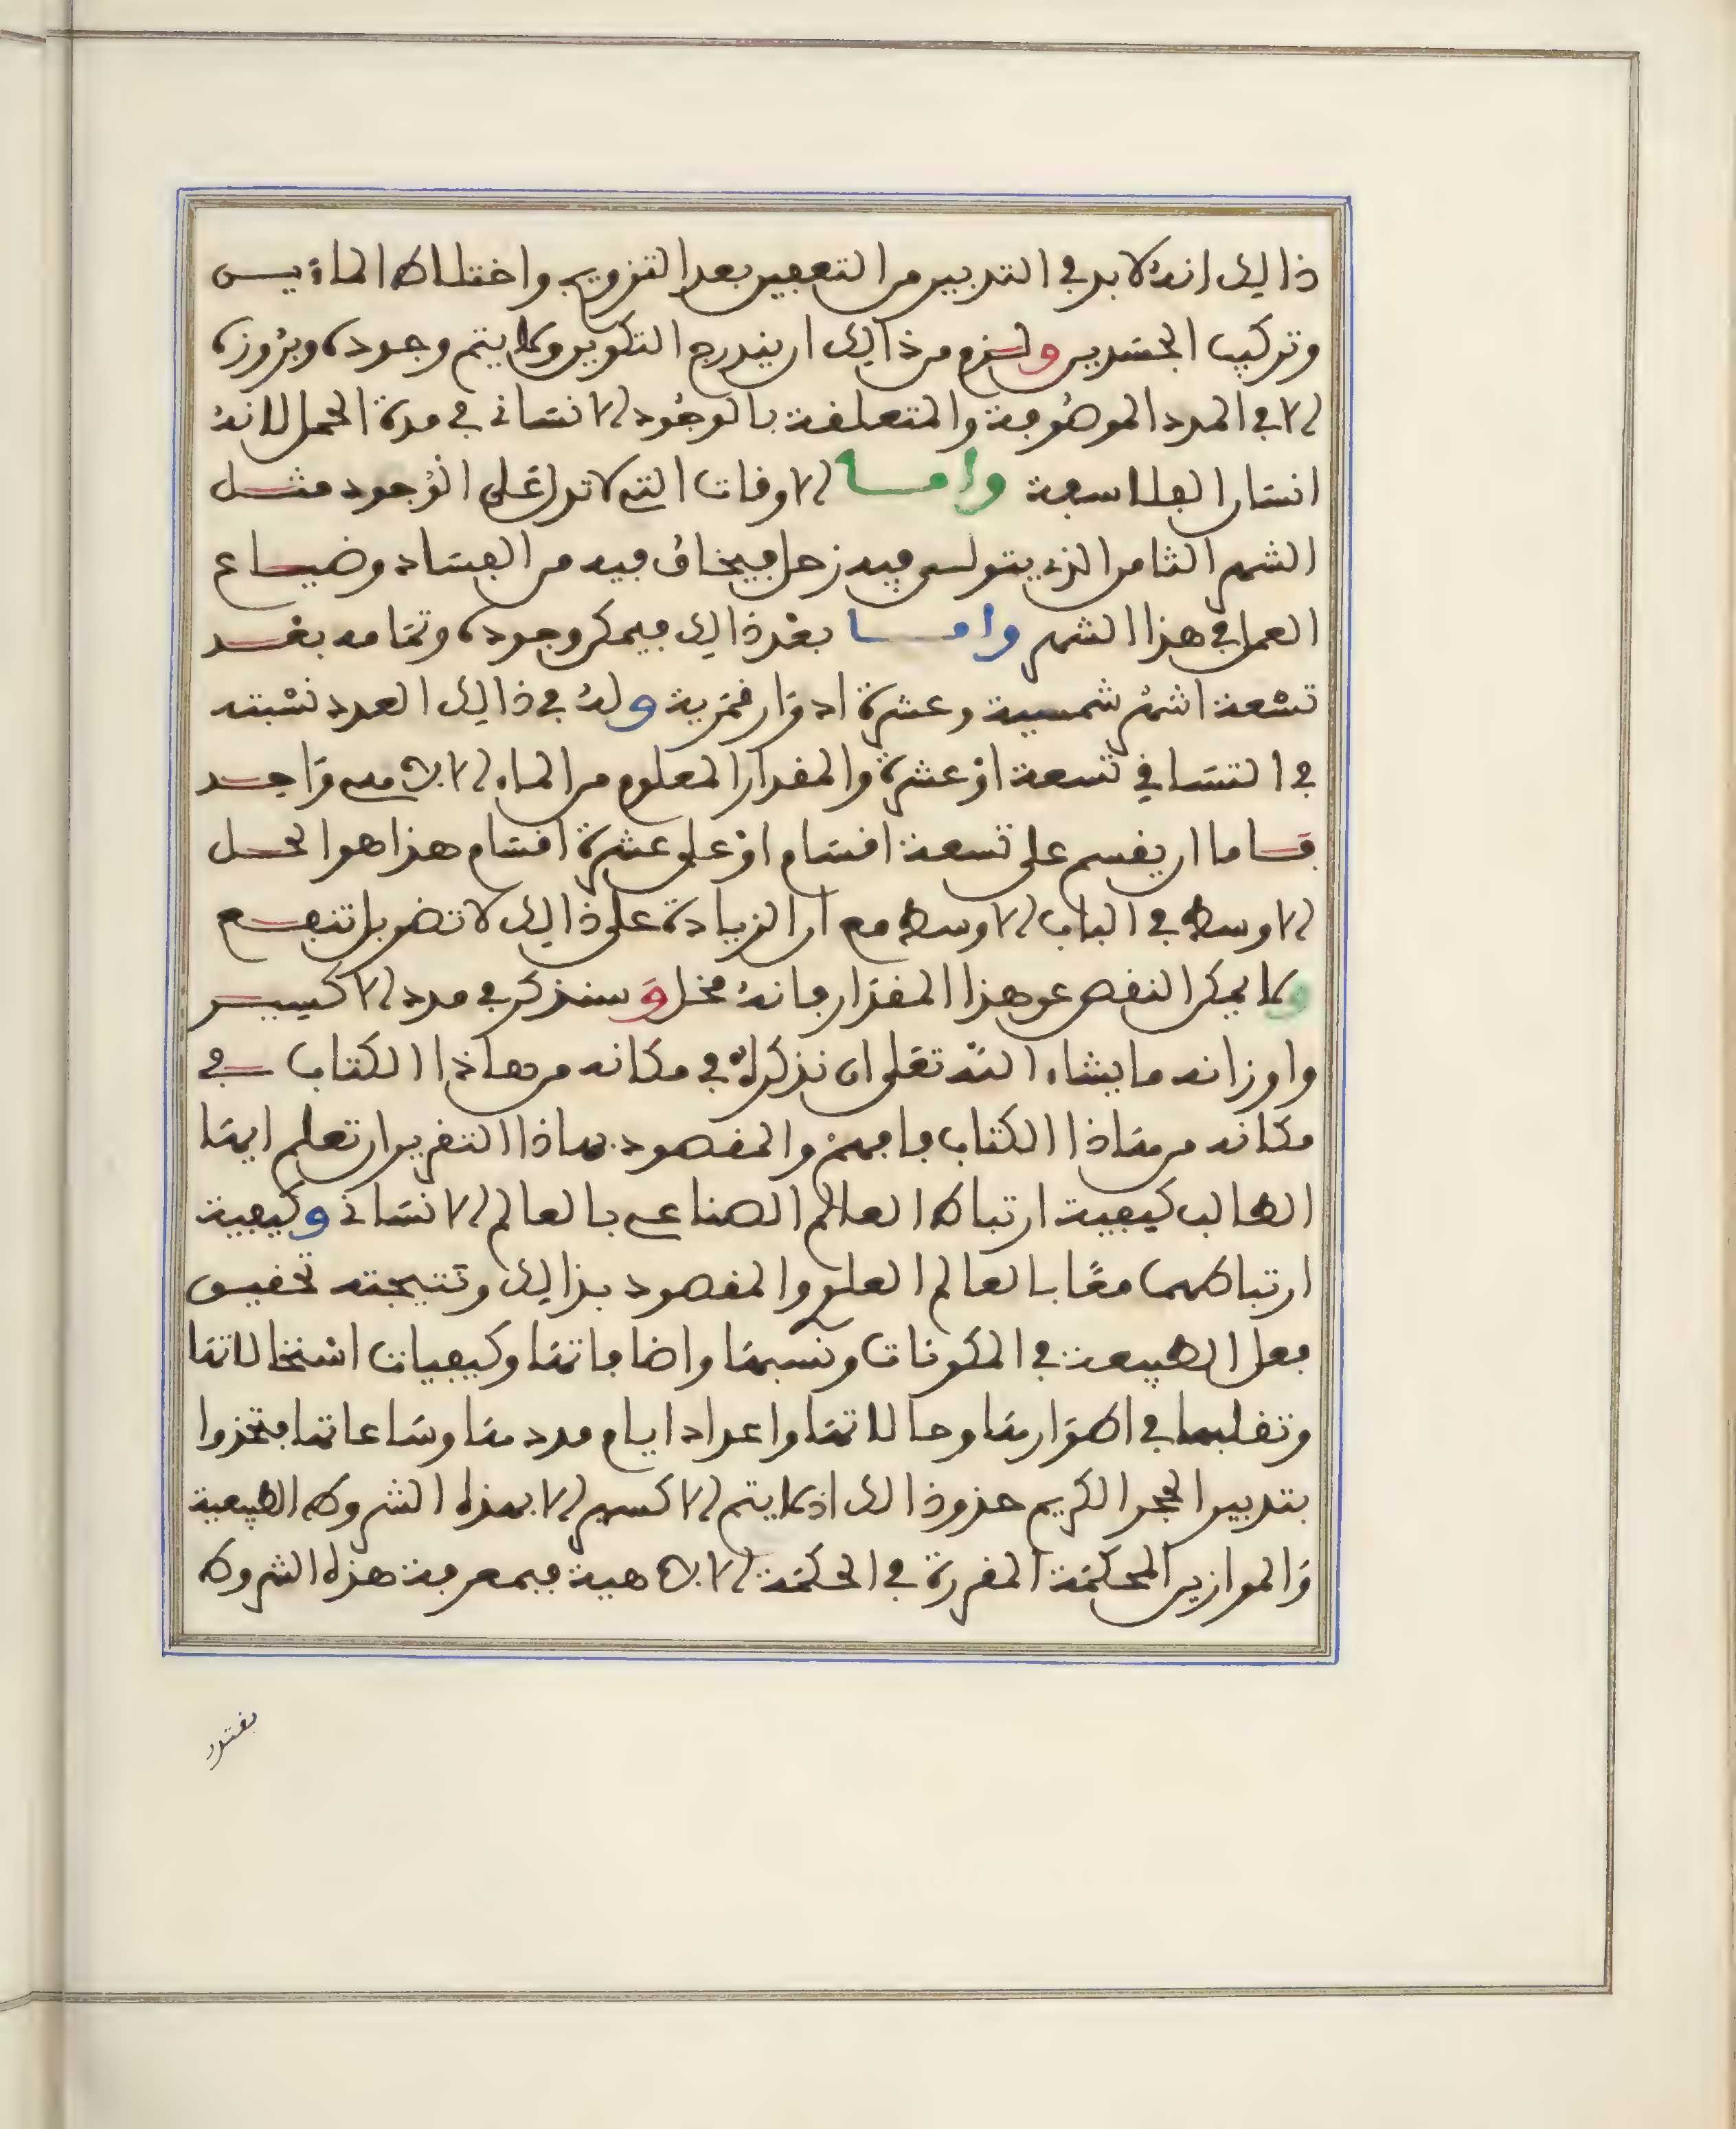 ذالك انه لا بد في التدبير من التعفين بعد التزويج واختلاط المائيين
وتركيب الجسدين ولزم من ذالك ان يندرج التكوين ولا يتم وجوده وبروزه
الا في المدد الموصوفة والمتعلقة بالوجود الانساني في مدة الحمل لانه
انسان الفلاسفة واما الاوقات التي لا تدل على الوجود مثل
الشهر الثامن الذي يتولى فيه زحل فيخاف فيه من الفساد وضياع
العمل في هذا الشهر واما بعد ذالك فيمكن وجوده وتمامه بعد
تسعة اشهر شمسية وعشرة ادوار قمرية وله في ذالك العدد نسبته
في التساقي تسعة او عشرة والمقدار المعلوم من الماء الالاهي واحد
فاما ان يقسم على تسعة اقسام او على عشرة اقسام هذا هو الحل
الاوسط في الباب الاوسط مع ان الزيادة على ذالك لا تضر بل تنفع
ولا يمكن النقص عن هذا المقدار فانه مخل وسنذكر في مدد الاكسير
واوزانه ما يشاء الله تعلى ان نذكره في مكانه من هاذا الكتاب في
مكانه من هاذا الكتاب فافهم والمقصود بهاذا التقرير ان تعلم ايها
الطالب كيفية ارتباط العالم الصناعي بالعالم الانساني وكيفية
ارتباطهما معا بالعالم العلوي والمقصود بذالك ونتيجته تحقيق
فعل الطبيعة في المكونات ونسبها واضافاتها وكيفيات استحالاتها
وتقلبها في اطوارها وحالاتها واعداد ايام مددها وساعاتها فتحذوا
بتدبير الحجر الكريم حذو ذالك اذ لا يتم الاكسير الا بهذه الشروط الطبيعية
والموازين المحكمة المقررة في الحكمة الالاهية فبمعرفة هذه الشروط